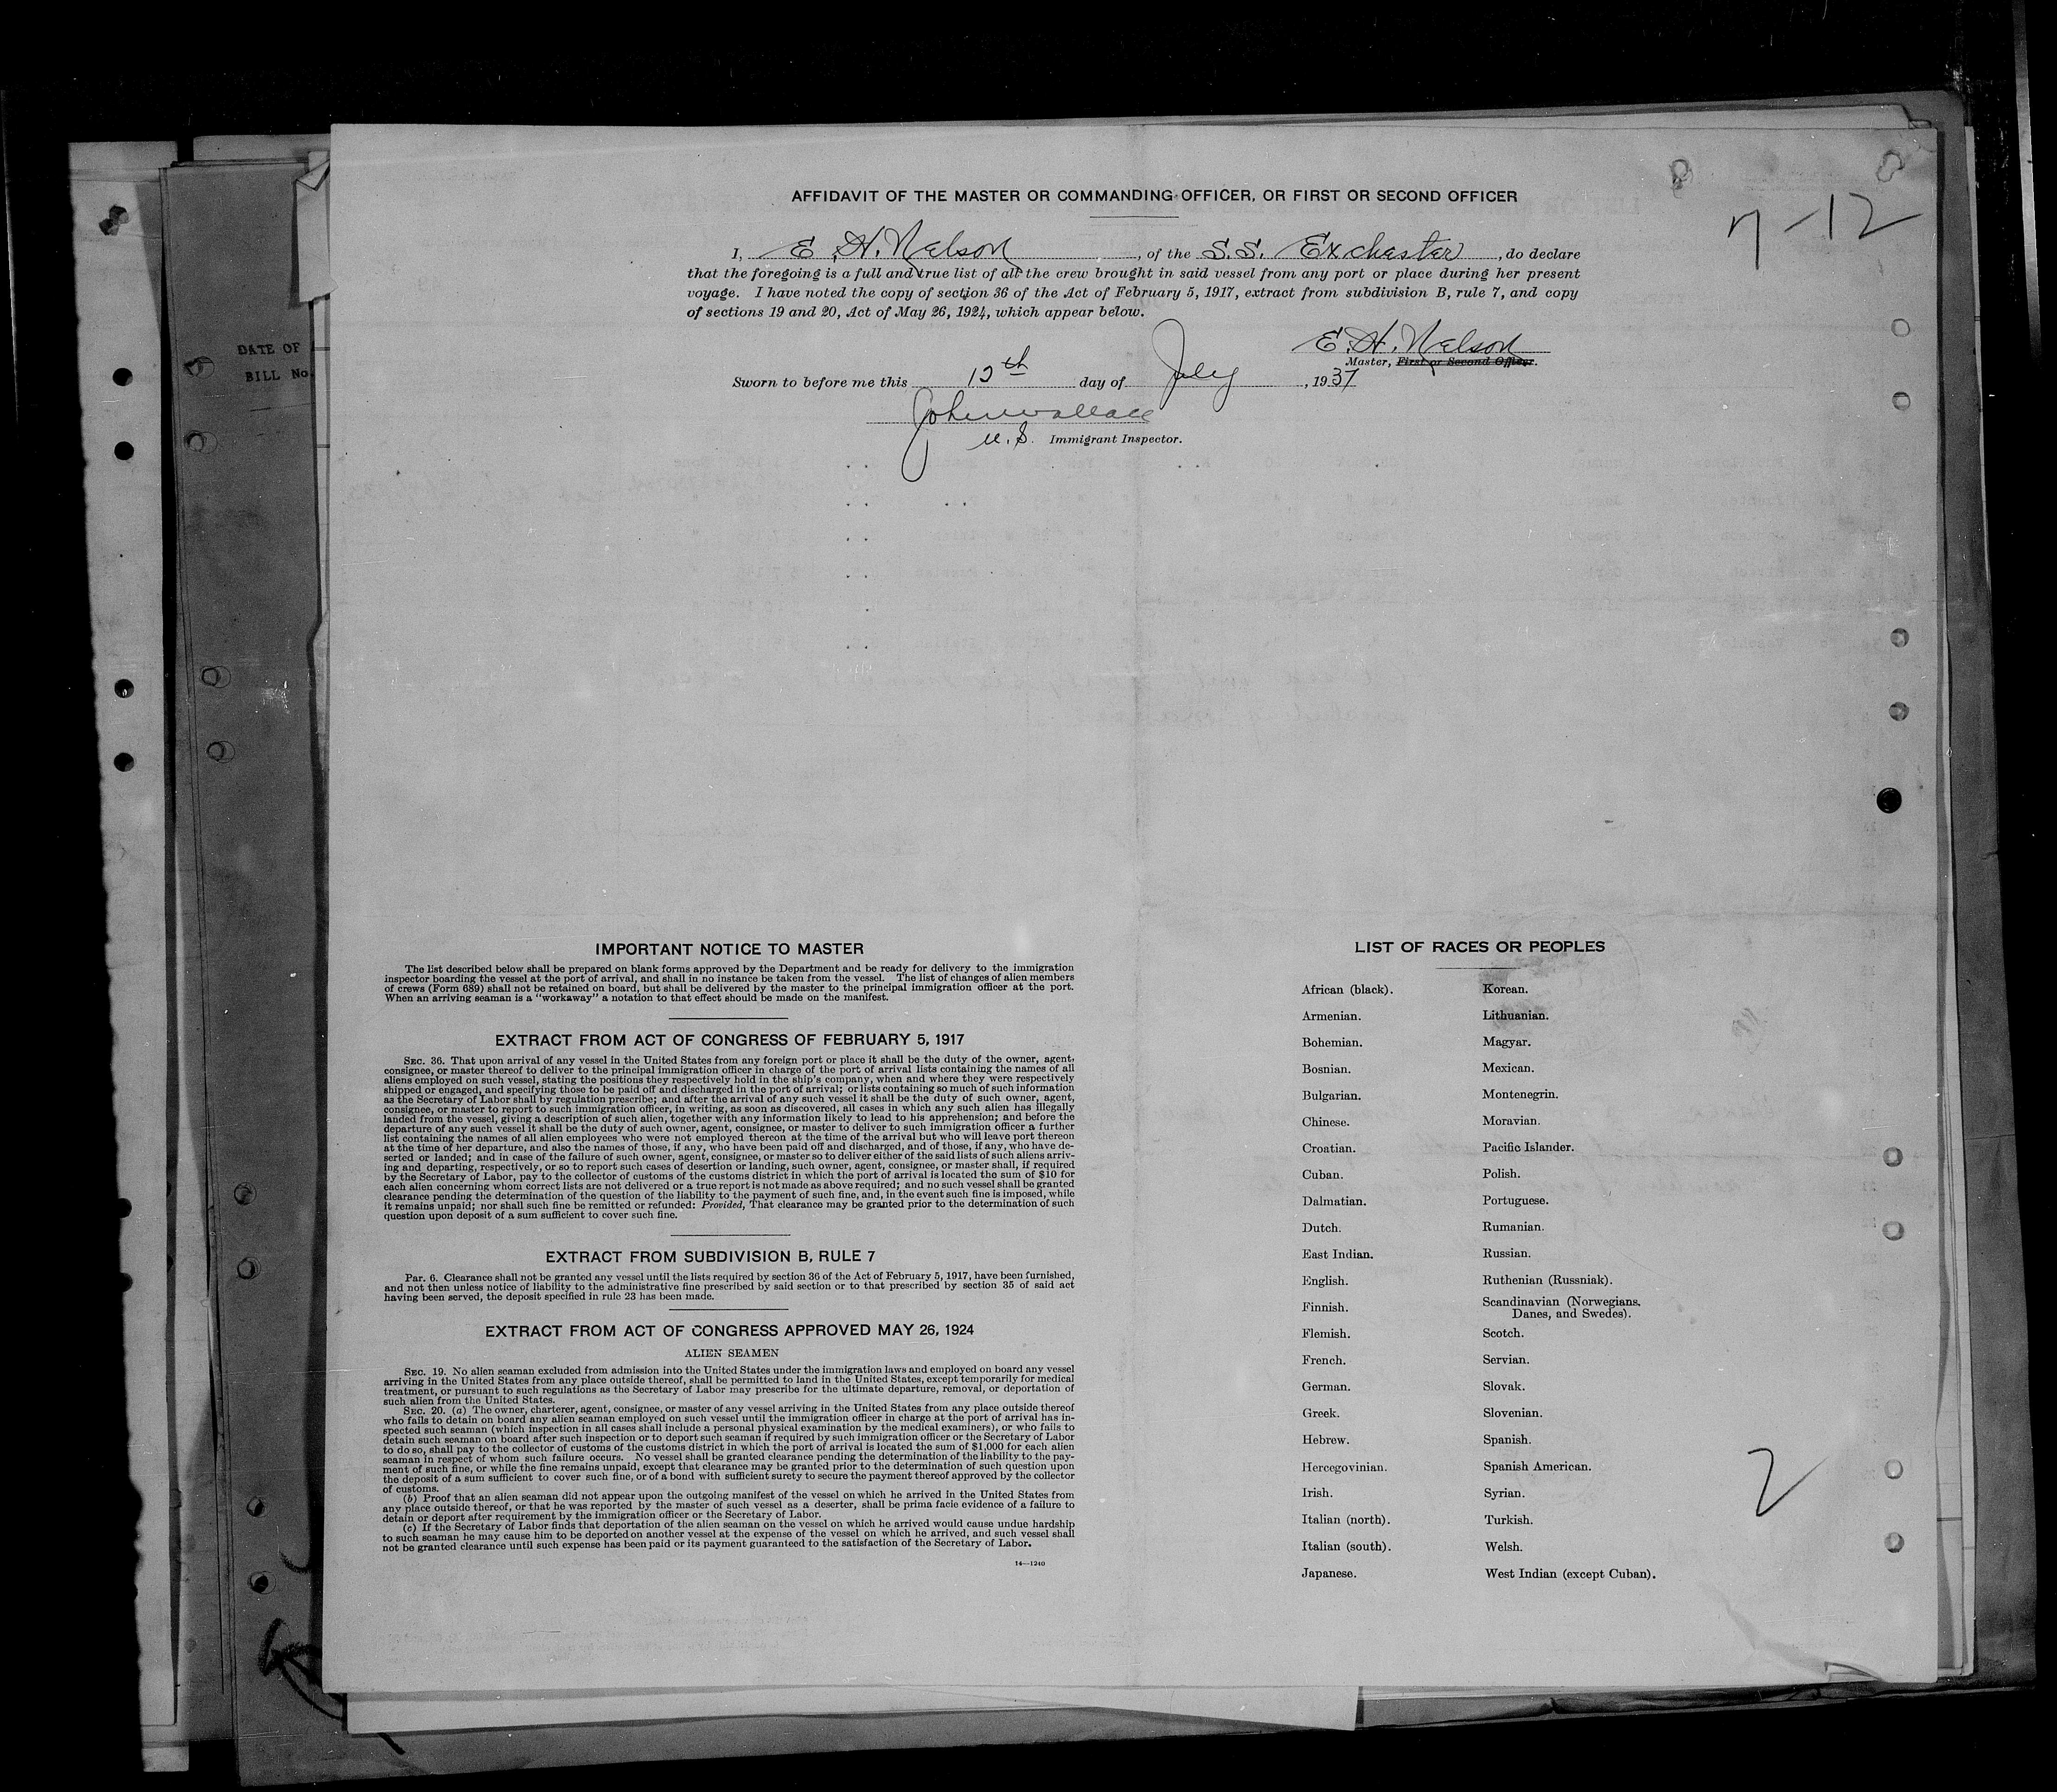 AFFIDAVIT OF THE MASTER OR COMMANDING OFFICER, OR FIRST OR SECOND OFFICER
7-12
I, E. H. Nelson, of the S.S. Exchester, do declare
that the foregoing is a full and true list of all the crew brought in said vessel from any port or place during her present
voyage. I have noted the copy of section 36 of the Act of February 5, 1917, extract from subdivision B, rule 7, and copy
of sections 19 and 20, Act of May 26, 1924, which appear below.
E. H. Nelson
Master, First or Second Officer.
Sworn to before me this 12th day of July, 1937
John Wallace
U.S. Immigrant Inspector.
DATE OF
BILL No.
IMPORTANT NOTICE TO MASTER
The list described below shall be prepared on blank forms approved by the Department and be ready for delivery to the immigration
inspector boarding the vessel at the port of arrival, and shall in no instance be taken from the vessel. The list of changes of alien members
of crews (Form 689) shall not be retained on board, but shall be delivered by the master to the principal immigration officer at the port.
When an arriving seaman is a "workaway" a notation to that effect should be made on the manifest.
EXTRACT FROM ACT OF CONGRESS OF FEBRUARY 5, 1917
SEC. 36. That upon arrival of any vessel in the United States from any foreign port or place it shall be the duty of the owner, agent,
consignee, or master thereof to deliver to the principal immigration officer in charge of the port of arrival lists containing the names of all
aliens employed on such vessel, stating the positions they respectively hold in the ship's company, when and where they were respectively
shipped or engaged, and specifying those to be paid off and discharged in the port of arrival; or lists containing so much of such information
as the Secretary of Labor shall by regulation prescribe; and after the arrival of any such vessel it shall be the duty of such owner, agent,
consignee, or master to report to such immigration officer, in writing, as soon as discovered, all cases in which any such alien has illegally
landed from the vessel, giving a description of such alien, together with any information likely to lead to his apprehension; and before the
departure of any such vessel it shall be the duty of such owner, agent, consignee, or master to deliver to such immigration officer a further
list containing the names of all alien employees who were not employed thereon at the time of the arrival but who will leave port thereon
at the time of her departure, and also the names of those, if any, who have been paid off and discharged, and of those, if any, who have de-
serted or landed; and in case of the failure of such owner, agent, consignee, or master so to deliver either of the said lists of such aliens arriv-
ing and departing, respectively, or so to report such cases of desertion or landing, such owner, agent, consignee, or master shall, if required
by the Secretary of Labor, pay to the collector of customs of the customs district in which the port of arrival is located the sum of $10 for
each alien concerning whom correct lists are not delivered or a true report is not made as above required; and no such vessel shall be granted
clearance pending the determination of the question of the liability to the payment of such fine, and, in the event such fine is imposed, while
it remains unpaid; nor shall such fine be remitted or refunded: Provided, That clearance may be granted prior to the determination of such
question upon deposit of a sum sufficient to cover such fine.
EXTRACT FROM SUBDIVISION B, RULE 7
Par. 6. Clearance shall not be granted any vessel until the lists required by section 36 of the Act of February 5, 1917, have been furnished,
and not then unless notice of liability to the administrative fine prescribed by said section or to that prescribed by section 35 of said act
having been served, the deposit specified in rule 23 has been made.
EXTRACT FROM ACT OF CONGRESS APPROVED MAY 26, 1924
ALIEN SEAMEN
SEC. 19. No alien seaman excluded from admission into the United States under the immigration laws and employed on board any vessel
arriving in the United States from any place outside thereof, shall be permitted to land in the United States, except temporarily for medical
treatment, or pursuant to such regulations as the Secretary of Labor may prescribe for the ultimate departure, removal, or deportation of
such alien from the United States.
SEC. 20. (a) The owner, charterer, agent, consignee, or master of any vessel arriving in the United States from any place outside thereof
who fails to detain on board any alien seaman employed on such vessel until the immigration officer in charge at the port of arrival has in-
spected such seaman (which inspection in all cases shall include a personal physical examination by the medical examiners), or who fails to
detain such seaman on board after such inspection or to deport such seaman if required by such immigration officer or the Secretary of Labor
to do so, shall pay to the collector of customs of the customs district in which the port of arrival is located the sum of $1,000 for each alien
seaman in respect of whom such failure occurs. No vessel shall be granted clearance pending the determination of the liability to the pay-
ment of such fine, or while the fine remains unpaid, except that clearance may be granted prior to the determination of such question upon
the deposit of a sum sufficient to cover such fine, or of a bond with sufficient surety to secure the payment thereof approved by the collector
of customs.
(b) Proof that an alien seaman did not appear upon the outgoing manifest of the vessel on which he arrived in the United States from
any place outside thereof, or that he was reported by the master of such vessel as a deserter, shall be prima facie evidence of a failure to
detain or deport after requirement by the immigration officer or the Secretary of Labor.
(c) If the Secretary of Labor finds that deportation of the alien seaman on the vessel on which he arrived would cause undue hardship
to such seaman he may cause him to be deported on another vessel at the expense of the vessel on which he arrived, and such vessel shall
not be granted clearance until such expense has been paid or its payment guaranteed to the satisfaction of the Secretary of Labor.
14—1240
LIST OF RACES OR PEOPLES
African (black).
Armenian.
Bohemian.
Bosnian.
Bulgarian.
Chinese.
Croatian.
Cuban.
Dalmatian.
Dutch.
East Indian.
English.
Finnish.
Flemish.
French.
German.
Greek.
Hebrew.
Hercegovinian.
Irish.
Italian (north).
Italian (south).
Japanese.
Korean.
Lithuanian.
Magyar.
Mexican.
Montenegrin.
Moravian.
Pacific Islander.
Polish.
Portuguese.
Rumanian.
Russian.
Ruthenian (Russniak).
Scandinavian (Norwegians,
Danes, and Swedes).
Scotch.
Servian.
Slovak.
Slovenian.
Spanish.
Spanish American.
Syrian.
Turkish.
Welsh.
West Indian (except Cuban).
2